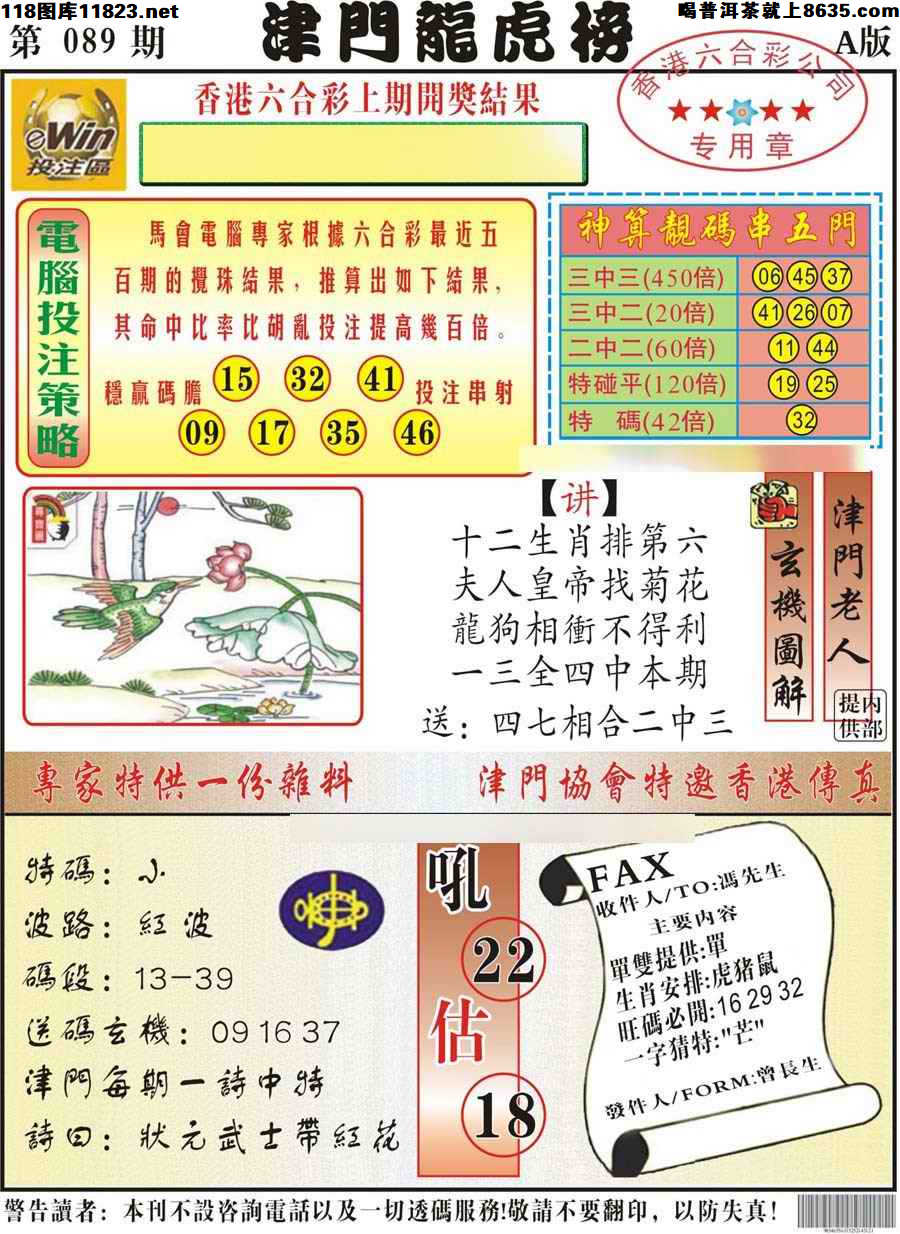 118图库11823.net
喝普洱茶就上8635.com
第 089 期
津門龍虎榜
A版
eWin
投注區
香港六合彩上期開獎結果
香港六合彩公司
专用章
電腦投注策略
馬會電腦專家根據六合彩最近五
百期的攪珠結果，推算出如下結果，
其命中比率比胡亂投注提高幾百倍。
穩贏碼膽 15 32 41 投注串射
09 17 35 46
神算靚碼串五門
三中三(450倍) 06 45 37
三中二(20倍) 41 26 07
二中二(60倍) 11 44
特碰平(120倍) 19 25
特 碼(42倍) 32
【讲】
十二生肖排第六
夫人皇帝找菊花
龍狗相衝不得利
一三全四中本期
送：四七相合二中三
玄機圖解
津門老人
内部提供
專家特供一份雜料
津門協會特邀香港傳真
特碼：小
波路：紅波
碼段：13-39
送碼玄機：09 16 37
津門每期一詩中特
詩曰：狀元武士帶紅花
吼
22
估
18
FAX
收件人/TO:馮先生
主要内容
單雙提供:單
生肖安排:虎猪鼠
旺碼必開:16 29 32
一字猜特:"芒"
發件人/FORM:曾長生
警告讀者：本刊不設咨詢電話以及一切透碼服務!敬請不要翻印，以防失真!